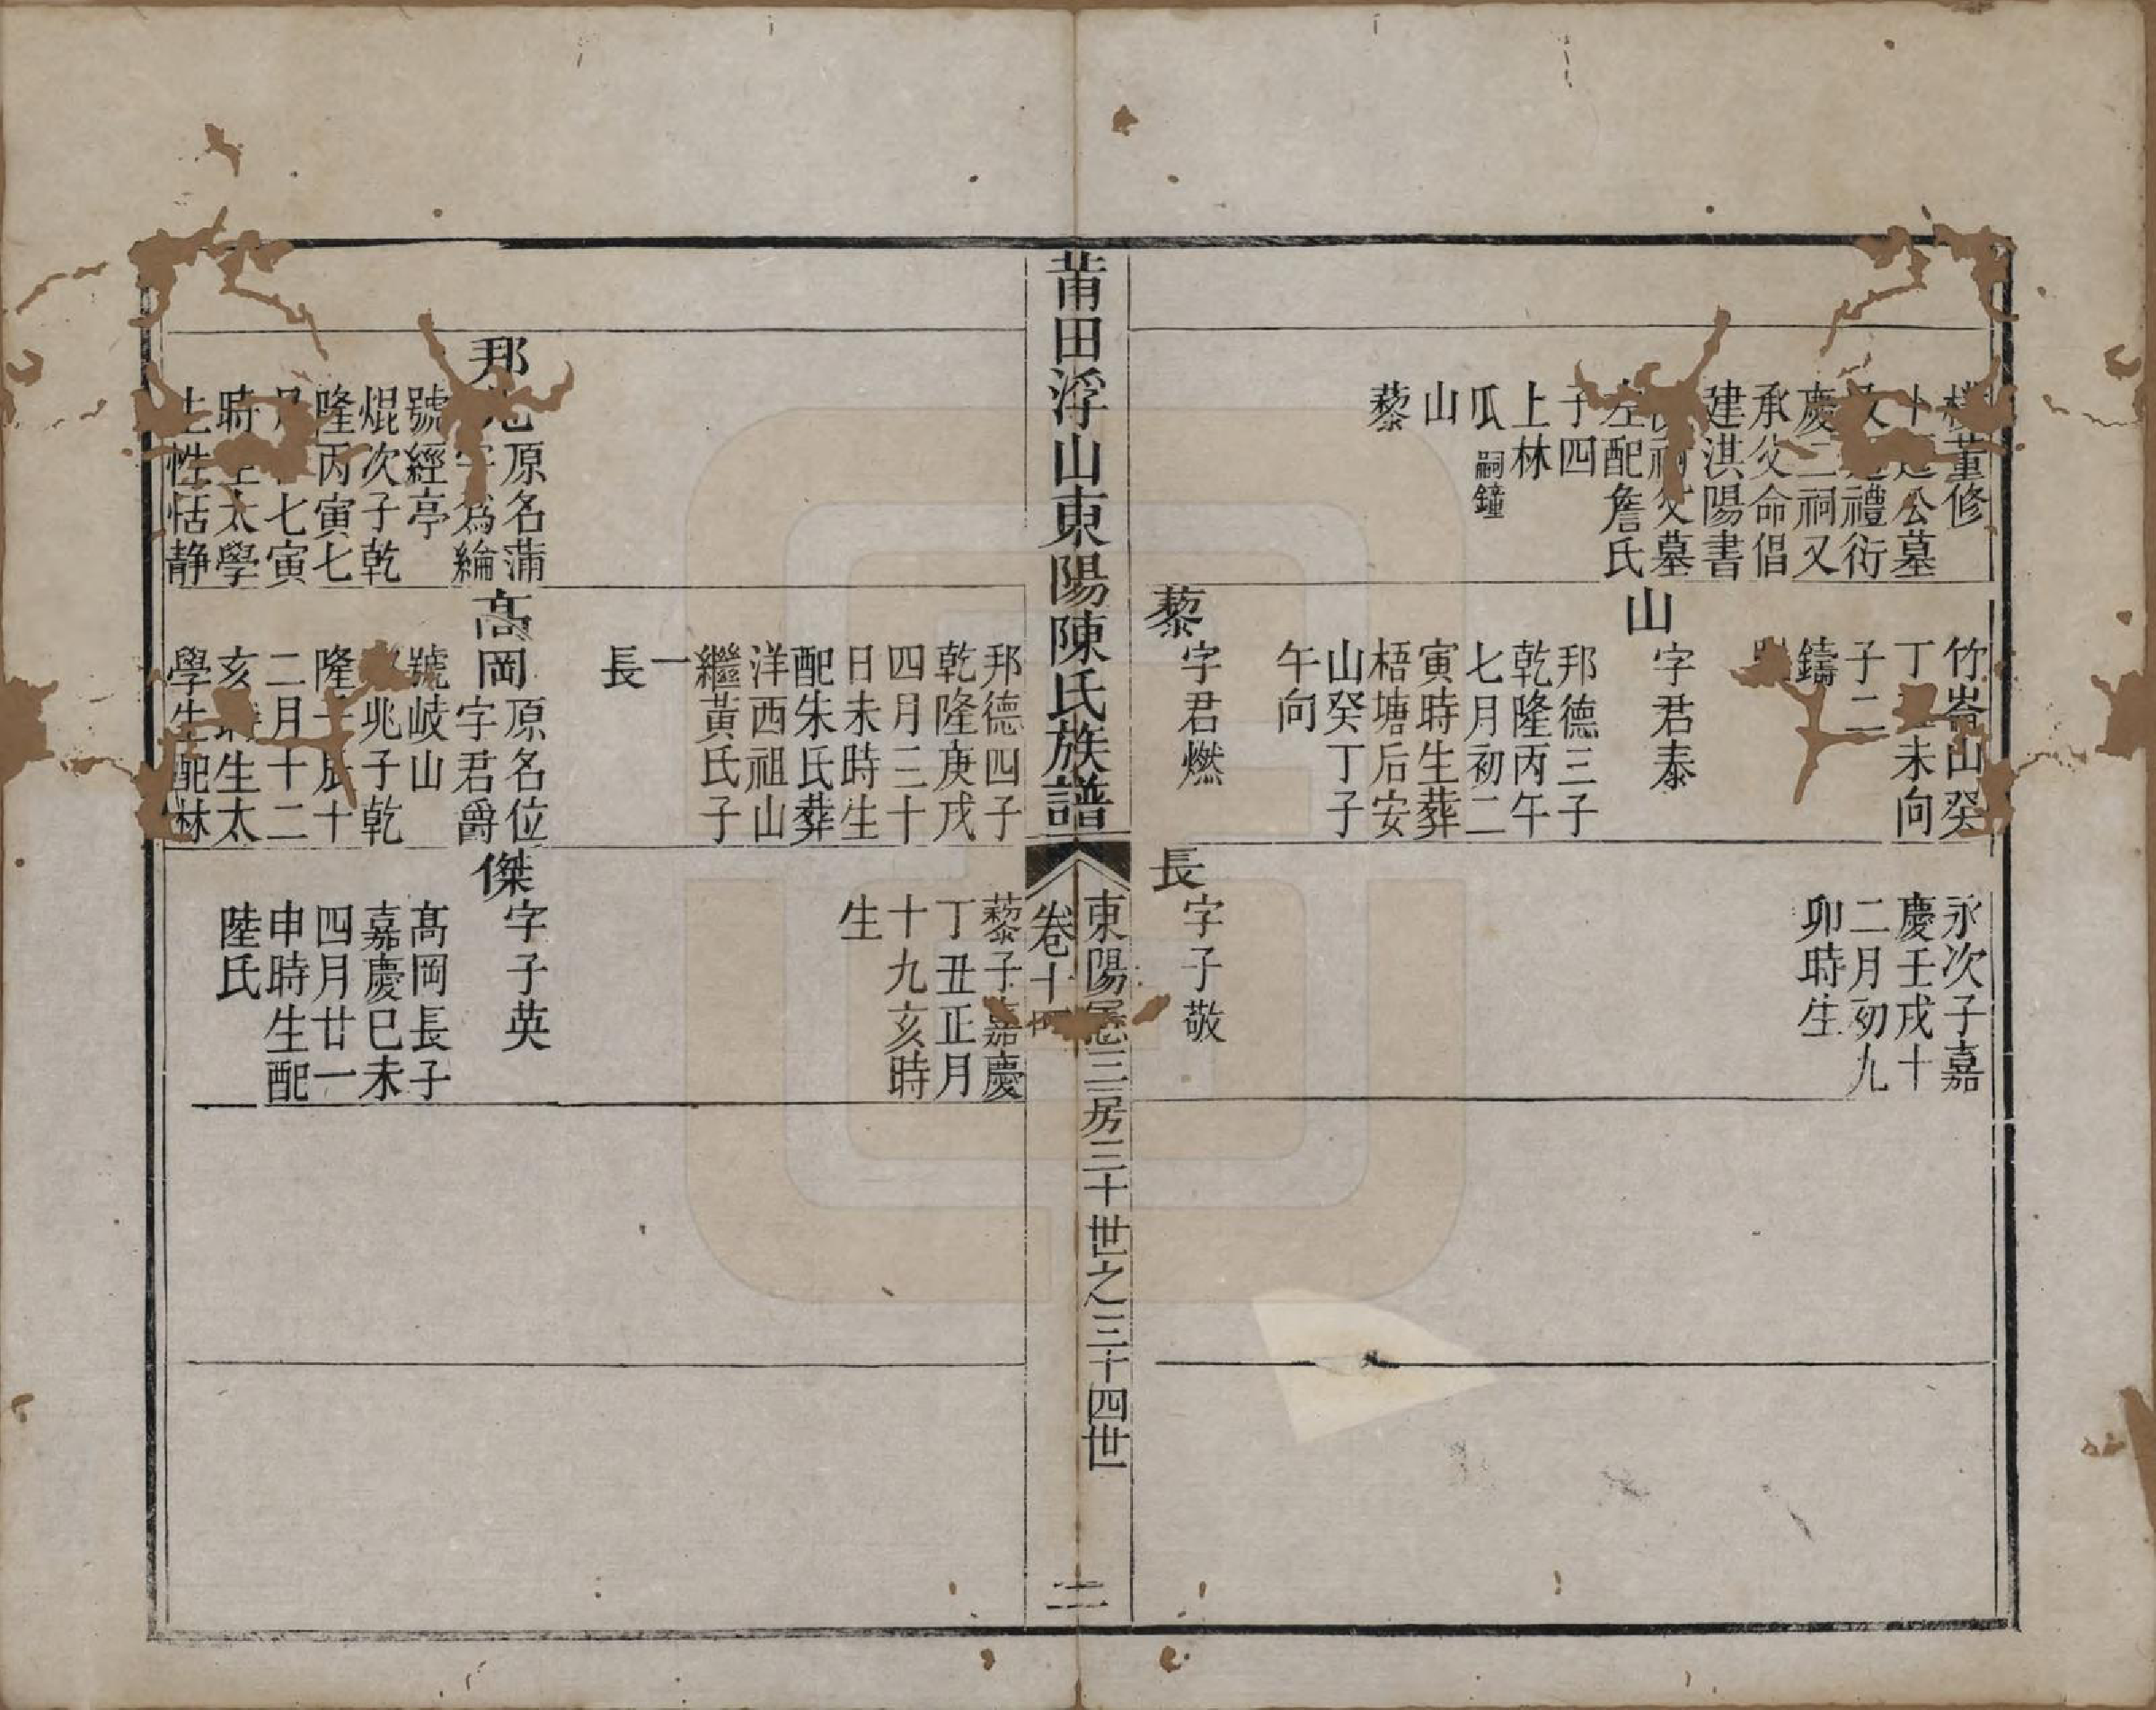 董修
公墓
禮衍
慶二祠又
承父命倡
建淇陽書
父墓
左配詹氏
子四
上林
瓜嗣鐘
山
藜
竹崙山癸
丁未向
子二
鑄
山
字君泰
邦德三子
乾隆丙午
七月初二
寅時生葬
梧塘后安
山癸丁子
午向
藜
字君燃
永次子嘉
慶壬戌十
二月初九
卯時生
長
字子敬
莆田浮山東陽陳氏族譜
東陽三房三十世之三十四世
卷十
二
邦
原名蒲
字為綸
號經亭
焜次子乾
隆丙寅七
七寅
時太學
生性恬静
邦德四子
乾隆庚戌
四月二十
日未時生
配朱氏葬
洋西祖山
繼黃氏子
一
長
髙岡
原名位
字君爵
號岐山
兆子乾
隆辰十
二月十二
亥生太
學生配林
藜子嘉慶
丁丑正月
十九亥時
生
傑
字子英
髙岡長子
嘉慶已未
四月廿一
申時生配
陸氏